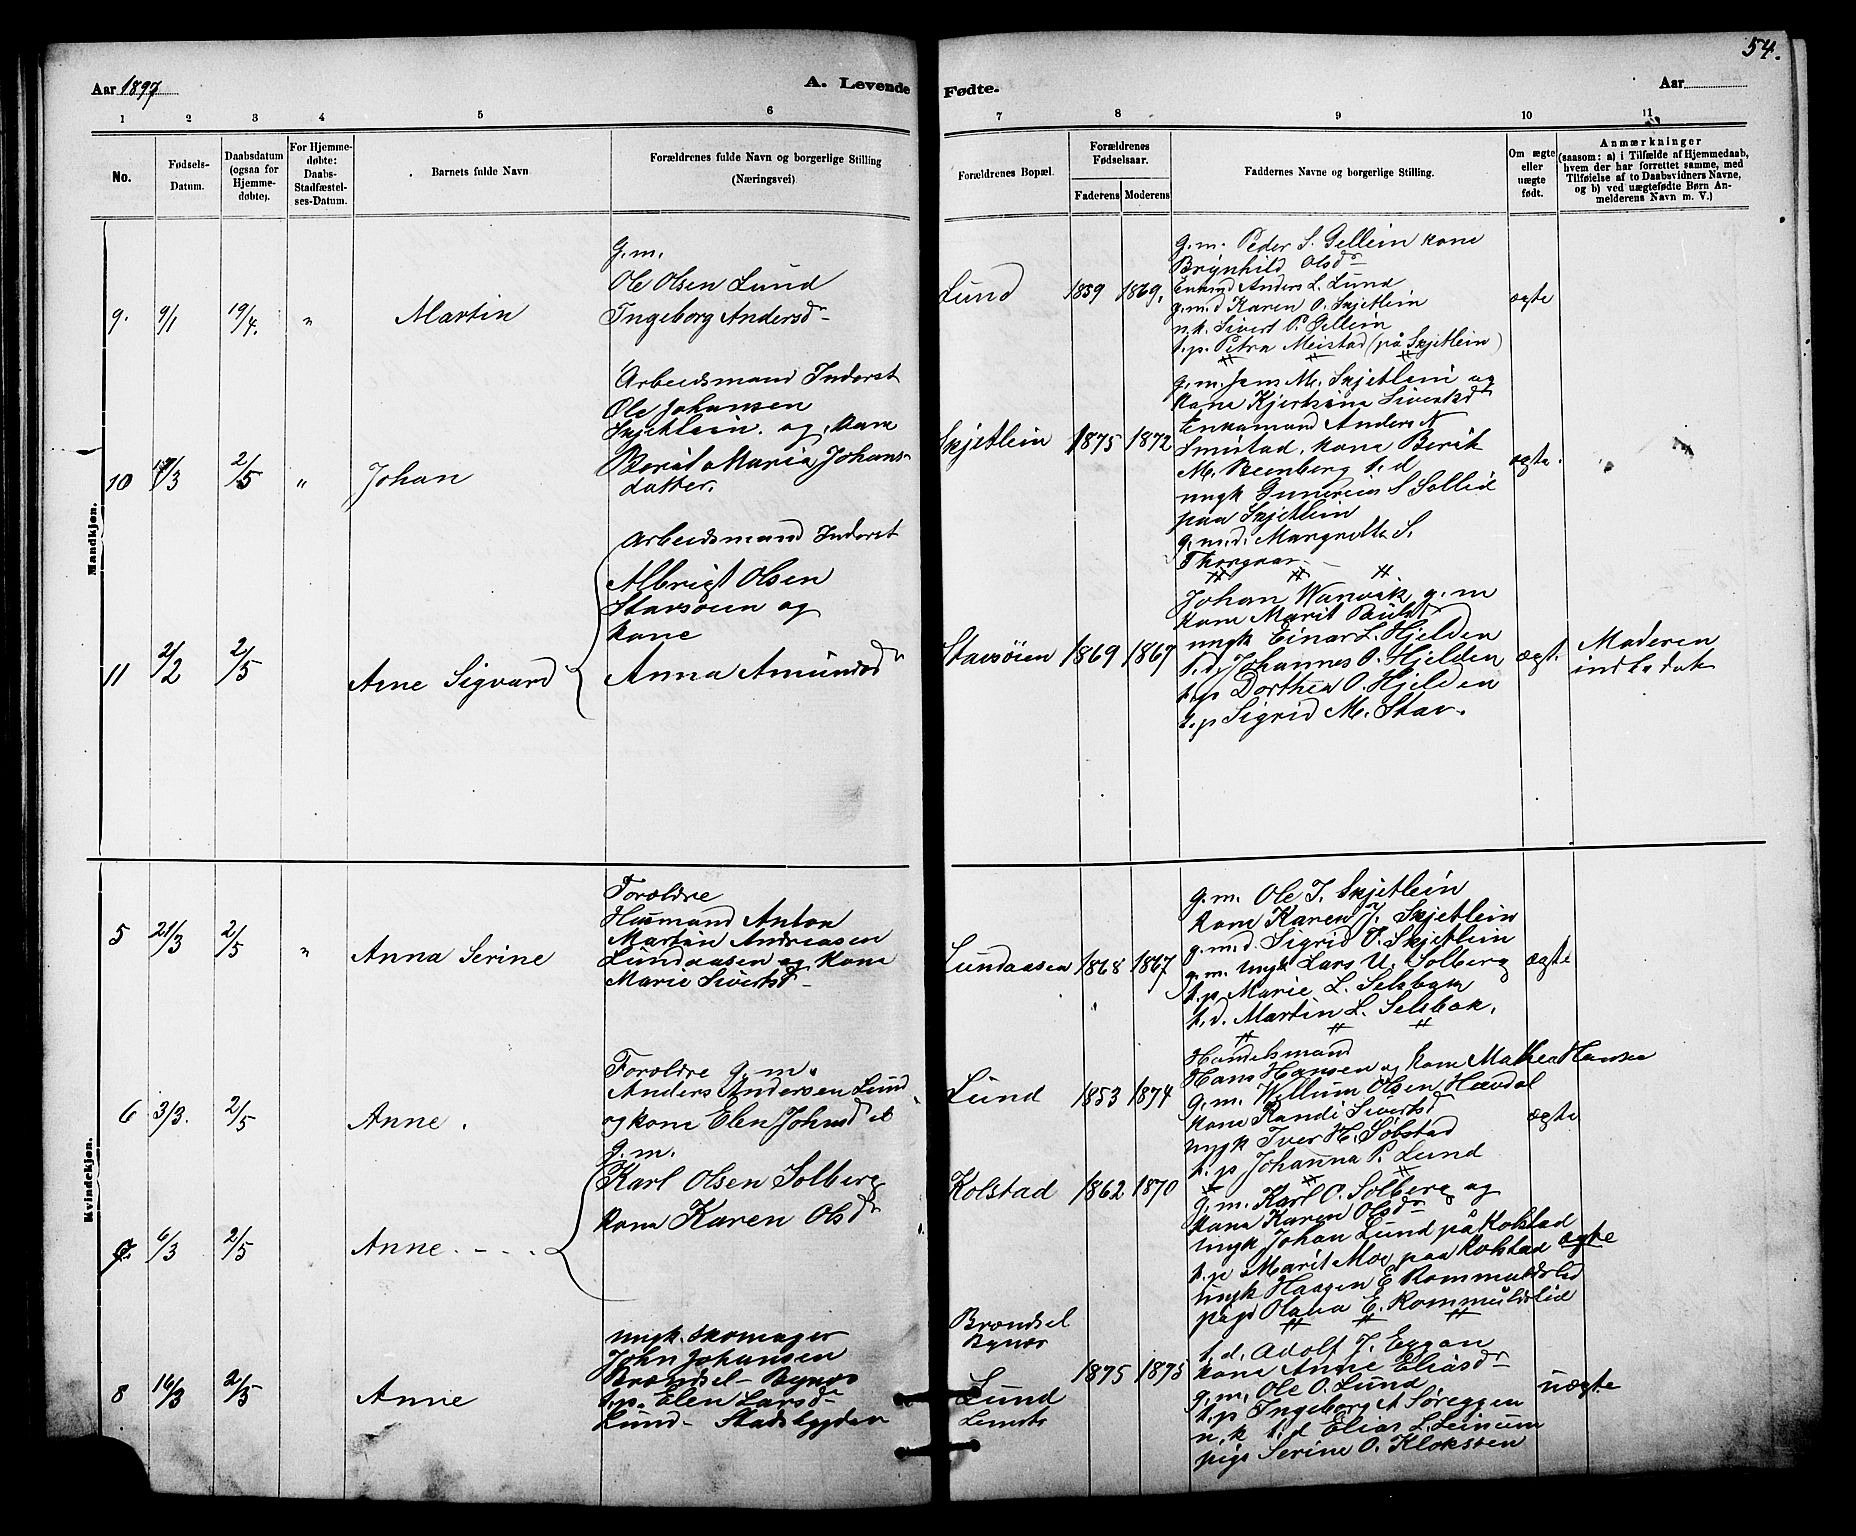 54.
Aar 1897
A. Levende
Fødte.
Aar
1 2 3 4 5 6 7 8 9 10 11
No.
Fødsels-
Datum.
Daabsdatum
(ogsaa for
Hjemme-
døbte).
For Hjemme-
døbte:
Daabs-
Stadfæstel-
ses-Datum.
Barnets fulde Navn
Forældrenes fulde Navn og borgerlige Stilling
(Næringsvei).
Forældrenes Bopæl.
Forældrenes
Fødselsaar.
Faderens
Moderens
Faddernes Navne og borgerlige Stilling.
Om ægte
eller
uægte
født.
Anmærkninger
(saasom: a) i Tilfælde af Hjemmedaab,
hvem der har forrettet samme, med
Tilføielse af to Daabsvidners Navne,
og b) ved uægtefødte Børn An-
melderens Navn m. V.)
Mandkjøn.
9. 9/1 19/4. " Martin
G.m.
Ole Olsen Lund
Ingeborg Andersd
Lund 1859 1869.
g.m. Peder S. Gellein kone
Brynhild Olsd
Enkmd Anders L. Lund
g.m.d Karen O. Skjetlein
n.k. Sivert P. Gellein
t.p. Petra Meistad (på Skjetlein)
ægte
10 17/3 2/5 " Johan
Arbeidsmand Inderst
Ole Johansen
Skjetlein. og kone
Berit Maria Johans-
datter.
Skjetlein 1875 1872
g.m. Jens M. Skjetlein og
kone Kjerstina Sivertsd
Enkemand Anders N
Smistad, kone Berit
M. Reenberg t.d
ungk Gunerius S Sollid
paa Skjetlein
g.m.d. Margrethe S.
ægte.
11 2/2 2/5 Arne Sigvard
Arbeidsmand Inderst
Albrigt Olsen
Stavsøien og
kone
Anna Amundsd
Stavsøien 1869 1867
Johan Wanvik g.m
kone Marit Paulsd
ungk Einar L. Hjelden
t.d. Johannes O. Hjelden
t.p Dorthea O. Hjelden
t.p Sigrid M. Stav.
ægt.
Moderen
indladet
Kvindekjøn.
5 21/3 2/5 " Anna Serine
Forældre
Husmand Anton
Martin Andreasen
Lundaasen og kone
Marie Sivertsd
Lundaasen 1868 1867
"
g.m. Ole I. Skjetlein
kone Karen J. Skjetlein
g.m.d. Sigrid O. Skjetlein
g.m. ungk Lars U. Solberg
t.p Marie L. Selsbak
t.d. Martin L. Selsbak.
ægte
6 3/3. 2/5 Anne.
Forældre g.m.
Anders Andersen Lund
og kone Elen Johnsd
Lund 1853 1874
Handelsmand
Hans Hansen og kone Mathea Hansen
g.m. Willum Olsen Hævdal
kone Randi Sivertsd
ungk Iver H. Søbstad
t.p Johanna P. Lund
ægte
7. 6/3 2/5 Anne. - - -
g.m.
Karl Olsen Solberg
kone Karen Olsd
Kolstad 1862 1870
g.m. Karl O. Solberg og
kone Karen Olsd
ungk Johan Lund på Kolstad
t.p Marit Moe paa Kolstad
ungk Haagen E Rommuldslid
pige Olava E. Rommuldslid
ægte
8 16/3 2/5 Anne
ungk. Skomager
John Johansen
Brændsel - Bynes
t.p. Elen Larsd
Lund - Stadsbygden
Brændsel
Bynes
Lund
1875 1873
t.d. Adolf J. Eggan
kone Anne Eliasd
g.m. Ole O. Lund
t.p Ingeborg A Søreggen
n.k t.d Elias L. Leinum
pige Serine O. Klokseen
uægte